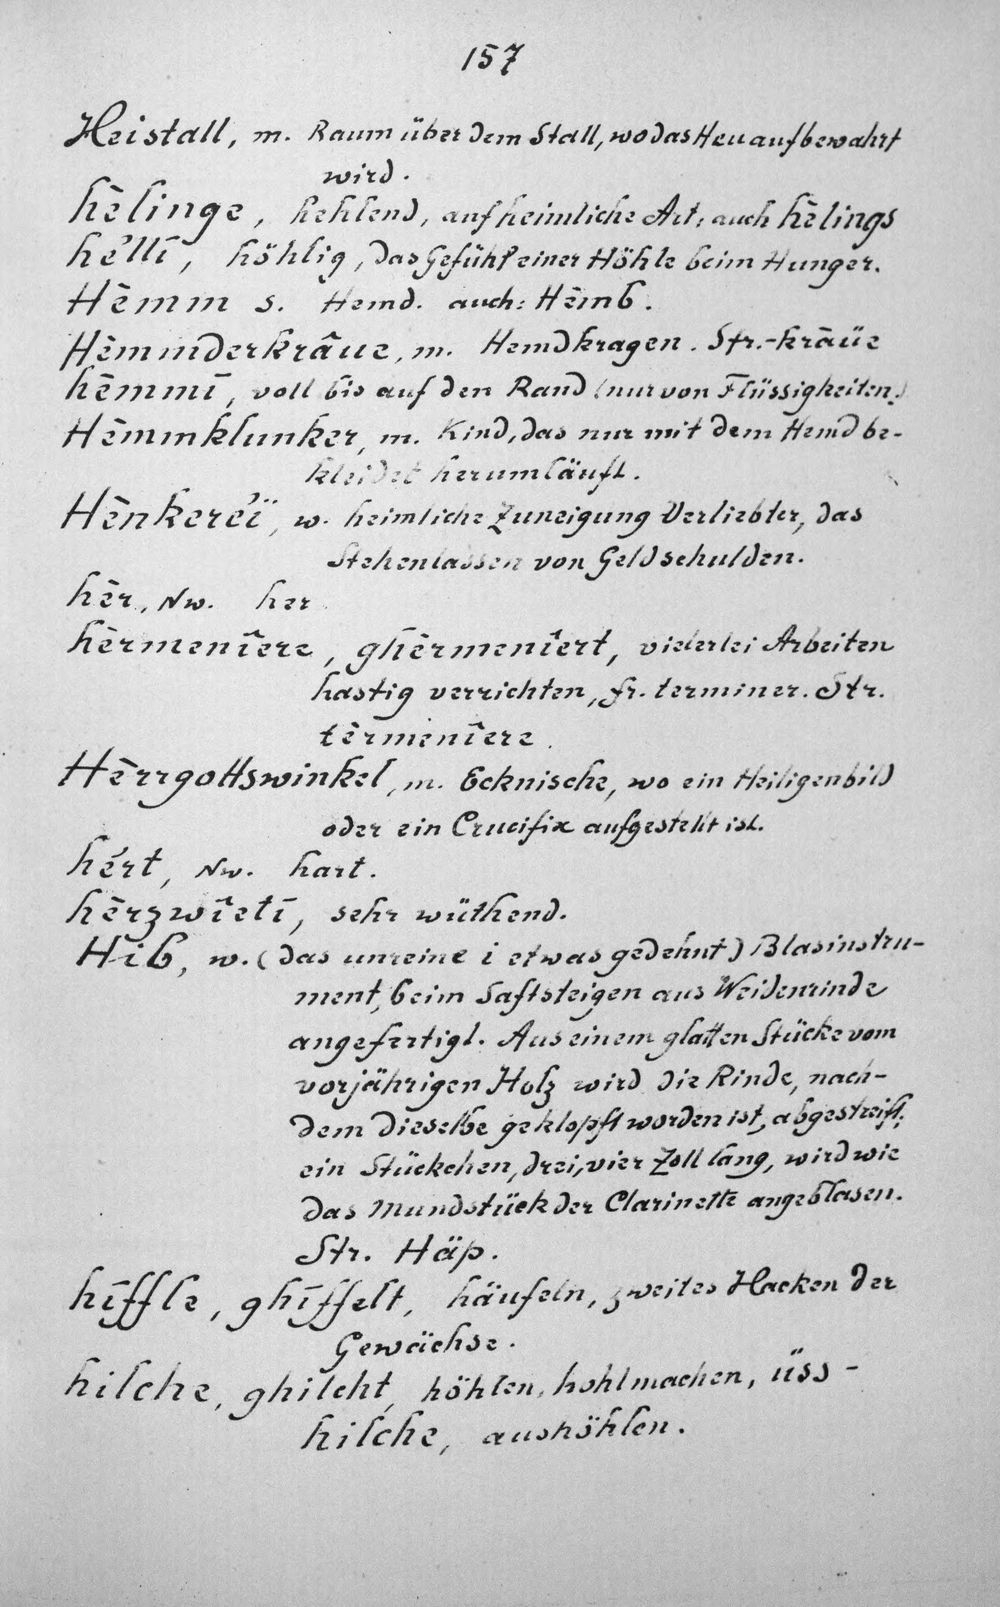 157
Heistall, m. Raum über dem Stall, wo das Heu aufbewahrt
wird.
hèlinge, hehlend, auf heimliche Art; auch hèlings
hé̄llī, höhlig, das Gefühl einer Höhle beim Hunger.
Hèmm s. Hemd. auch: Hèmb.
Hèmmderkrâue, m. Hemdkragen. Str.-kràüe
hèmmī, voll bis auf den Rand (nur von Flüssigkeiten.)
Hèmmklunker, m. Kind, das nur mit dem Hemd be-
kleidet herumläuft.
Hènkereï, w. heimliche Zuneigung Verliebter, das
Stehenlassen von Geldschulden.
hèr, Nw. her
hèrmenîere, ghèrmenîert, vielerlei Arbeiten
hastig verrichten, fr. terminer. Str.
tèrmenîere.
Hèrrgottswinkel, m. Ecknische, wo ein Heiligenbild
oder ein Crucifix aufgestellt ist.
hért, Nw. hart.
hèrzwîetī, sehr wüthend.
Hib, w. (das unreine i etwas gedehnt) Blasinstru-
ment, beim Saftsteigen aus Weidenrinde
angefertigt. Aus einem glatten Stücke vom
vorjährigen Holz wird die Rinde, nach-
dem dieselbe geklopft worden ist, abgestreift;
ein Stückchen, drei, vier Zoll lang, wird wie
das Mundstück der Clarinette angeblasen.
Str. Häp.
hīffle, ghīffelt, häufeln, zweites Hacken der
Gewächse.
hilche, ghilcht, höhlen, hohlmachen, üss-
hilche, aushöhlen.